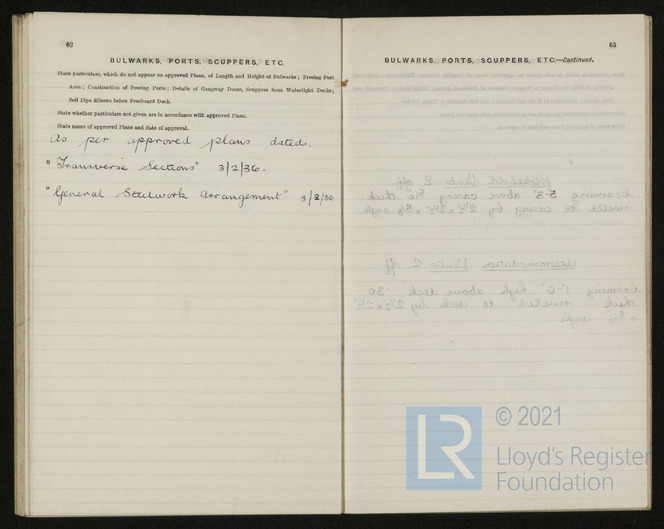 62
BULWARKS, PORTS, SCUPPERS, ETC.
State particulars, which do not appear on approved Plans, of Length and Height of Bulwarks; Freeing Port
Area; Construction of Freeing Ports; Details of Gangway Doors, Scuppers from Watertight Decks;
Soil Pipe Elbows below Freeboard Deck.
State whether particulars not given are in accordance with approved Plans.
State name of approved Plans and date of approval.
As per approved plans dated.
"Transverse Sections" 3/2/36.
"General Steelwork Arrangement" 3/2/36
63
BULWARKS, PORTS, SCUPPERS, ETC.—Continued.
LR
© 2021
Lloyd's Register
Foundation